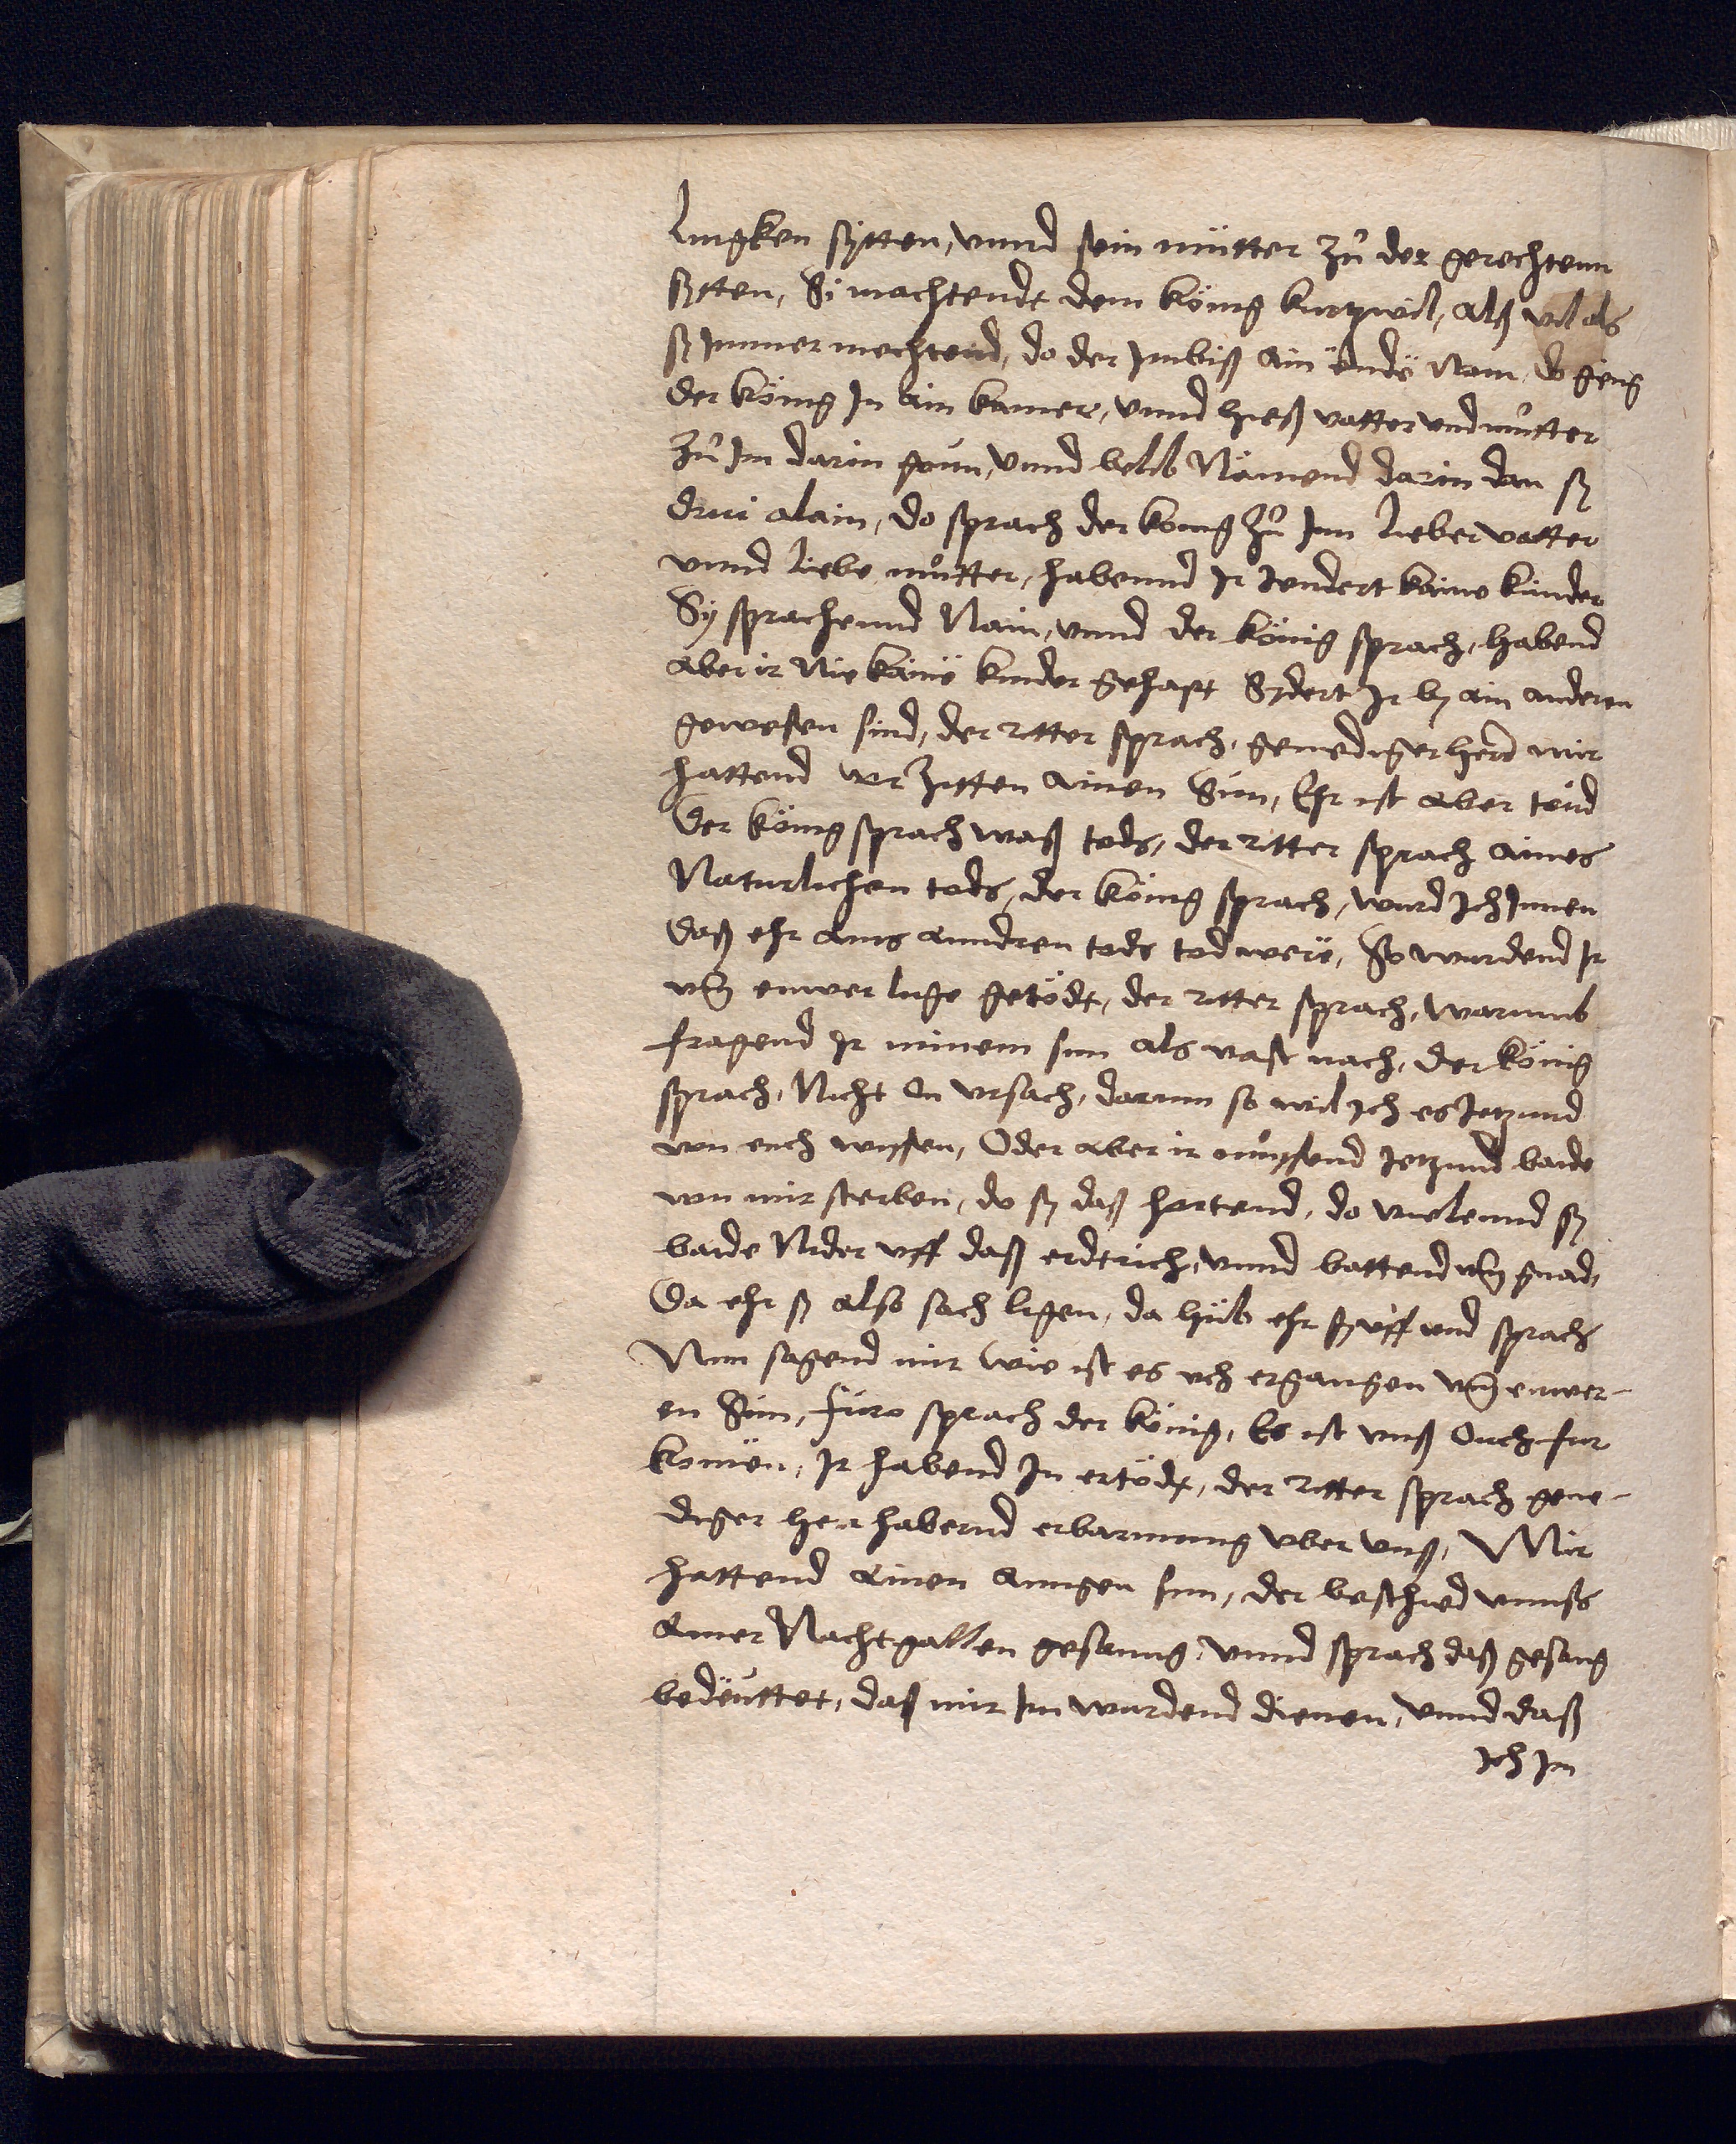 Lingken sÿtten, vnnd sein mütter zů der gerechtenn
sÿtten, Si machtendt dem König kurtzwil, alß vil als
sy Jmmer mechtend, do der Jmbiß ain ënde Nam, do gieng
der König Jn ain kamer, vnnd hieß vatter vnd můtter
zů Jm darin gonn, vnnd belib Nÿamend darin dan sy
druÿ alain, do sprach der konig zů Jnn Lieber vatter
vnnd Liebe můtter, habennd Jr Jendert kaine kinder
Sy sprachennd Nain, vnnd der König sprach, habend
aber ir Nie kaine kinder gehapt Sydert Jr by ain anderen
gewesen sind, der ritter sprach, genediger herr mir
hattend vor zitten ainen Sun, Ehr ist aber tod
Der König sprach waß tods, der ritter sprach aines
Naturlichen tods, der König sprach, wurd Jch Jnnen
daß ehr ains anndren tods tod were, So wurdend Jr
vm euwer luge getödt, der ritter sprach, warumb
fragend Jr minem sun als vast nach, der König
sprach, Nicht on vrsach, darum so wil ich es Jetzund
von euch wyssen, Oder aber ir můssend Jetzund baide
von mir sterben, do sy daß hortend, do vielennd sy
baide Nider vff daß erdtrich, vnnd battend vm gnad,
Da ehr sy also sach ligen, da hůb ehr sy vff vnd sprach
Nun sagend mir wie ist es uch ergangen vm euwer-
en Sun, füro sprach der König, Es ist vnß Ouch fur
komen, Jr habend Jn ertödt, der ritter sprach gene-
diger herr habennd erbarmung vber vnß, Mir
hattend ainen ainigen sun, der beschied vnnß
ainer Nachtgallen gesanng, vnnd sprach daß gesang
bedëuttet, daß mir Jm wurdend dienen, vnnd daß
ich Jm